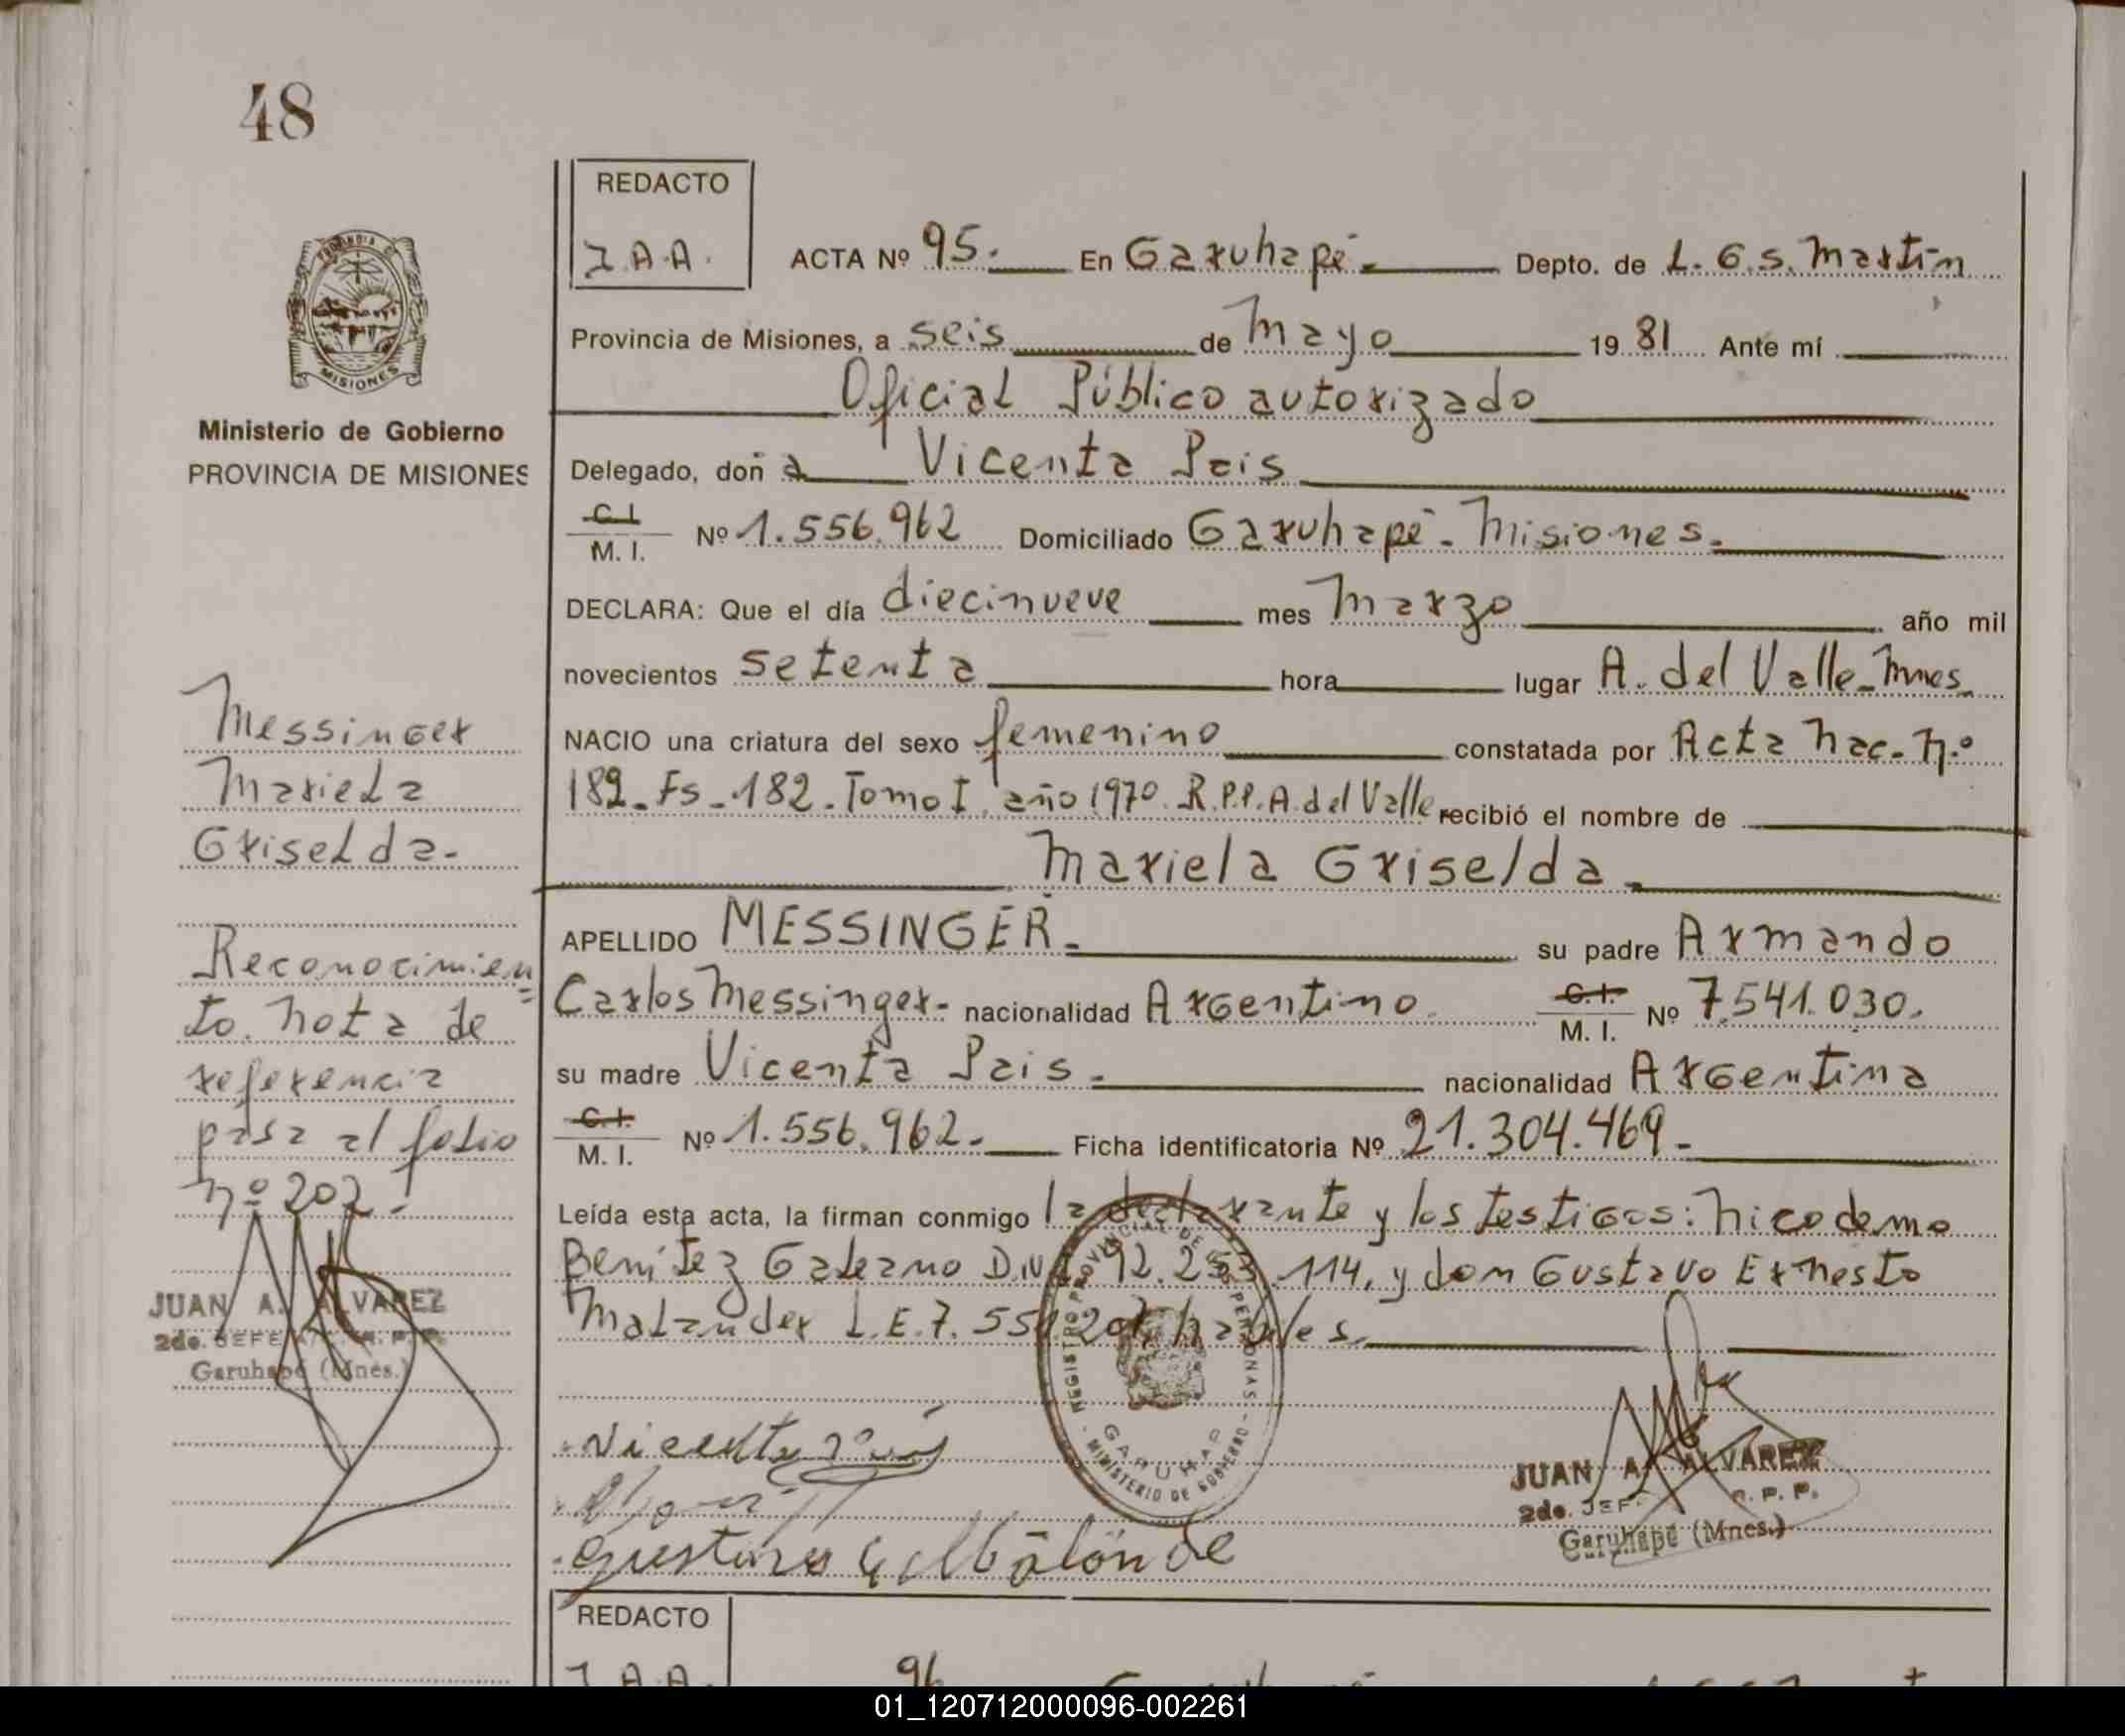 48
REDACTO
J.A.A.
ACTA Nº 95. En Garuhapé. Depto. de L. G. S. Martín
PROVINCIA DE
MISIONES
Provincia de Misiones, a seis de Mayo 1981 Ante mí
Oficial Público autorizado
Ministerio de Gobierno
PROVINCIA DE MISIONES
Delegado, doña Vicenta Pais
C.I.
M. I. Nº 1.556.962 Domiciliado Garuhapé - Misiones.
DECLARA: Que el día diecinueve mes Marzo año mil
novecientos setenta hora lugar A. del Valle - Mnes.
NACIO una criatura del sexo femenino constatada por Acta Nac. Nº
182 - Fs - 182 - Tomo I, año 1970. R.P.P. A. del Valle recibió el nombre de
Mariela Griselda.
APELLIDO MESSINGER. su padre Armando
Carlos Messinger - nacionalidad Argentino. C.I.
M. I. Nº 7.541.030.
su madre Vicenta Pais. nacionalidad Argentina
C.I.
M. I. Nº 1.556.962. Ficha identificatoria Nº 21.304.469 -
Leída esta acta, la firman conmigo la declarante y los testigos: Nicodemo
Benítez Galeano D.N.I. 92. 114, y don Gustavo Ernesto
Malander L.E. 7. hábiles.
Messinger
Mariela
Griselda -
Reconocimien
to. Nota de
referencia
pasa al folio
Nº 202.
JUAN A. ALVAREZ
2do. JEFE R. P. P.
Garuhapé (Mnes.)
REGISTRO PROVINCIAL DE LAS PERSONAS
GARUHAP
MINISTERIO DE GOBIERNO
Vicenta Pais
JUAN A. ALVAREZ
2do. JEFE R. P. P.
Garuhapé (Mnes.)
REDACTO
J.A.A.
96
01_120712000096-002261